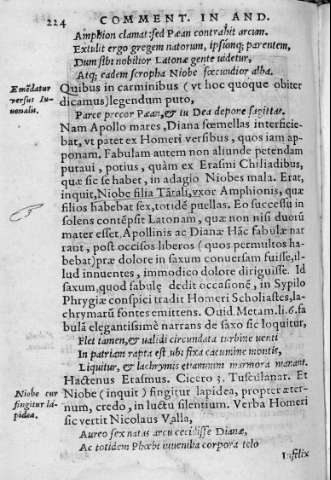 224 COMMENT. IN AND.
Amphion clamat: sed Pæan contrahit arcum.
Extulit ergo gregem natorum, ipsumq; parentem,
Dum sibi nobilior Latonæ gente videtur,
Atq; eadem scropha Niobe fœcundior alba.
Emẽdatur
versus Iu-
uenalis.
Quibus in carminibus (vt hoc quoque obiter
dicamus) legendum puto,
Parce precor Pæan, & tu Dea depone sagittas.
Nam Apollo mares, Diana fœmellas interficie-
bat, vt patet ex Homeri versibus, quos iam ap-
ponam. Fabulam autem non aliunde petendam
putaui, potius, quàm ex Erasmi Chiliadibus,
quæ sic se habet, in adagio Niobes mala. Erat,
inquit, Niobe filia Tãtali, vxor Amphionis, quæ
filios habebat sex, totidẽ puellas. Eo successu in
solens contẽpsit Latonam, quæ non nisi duorũ
mater esset, Apollinis ac Dianæ Hãc fabulæ nar
rant, post occisos liberos (quos permultos ha-
bebat) præ dolore in saxum conuersam fuisse, il-
lud innuentes, immodico dolore diriguisse. Id
saxum, quod fabulę dedit occasionẽ, in Sypilo
Phrygiæ conspici tradit Homeri Scholiastes, la-
chrymarũ fontes emittens. Ouid. Metam. li. 6. fa
bulã elegantissimè narrans de saxo sic loquitur,
Flet tamen, & validi circundata turbine venti
In patriam rapta est vbi fixa cacumine montis,
Liquitur, & lachrymis etiamnum marmora manant.
Hactenus Erasmus. Cicero 3. Tusculanar. Et
Niobe cur
fingitur la-
pidea.
Niobe (inquit) fingitur lapidea, propter æter-
num, credo, in luctu silentium. Verba Homeri
sic vertit Nicolaus Valla,
Aureo sex natas arcu cecidisse Dianæ,
Ac totidem Phœbi iuuenilia corpora telo
Infelix